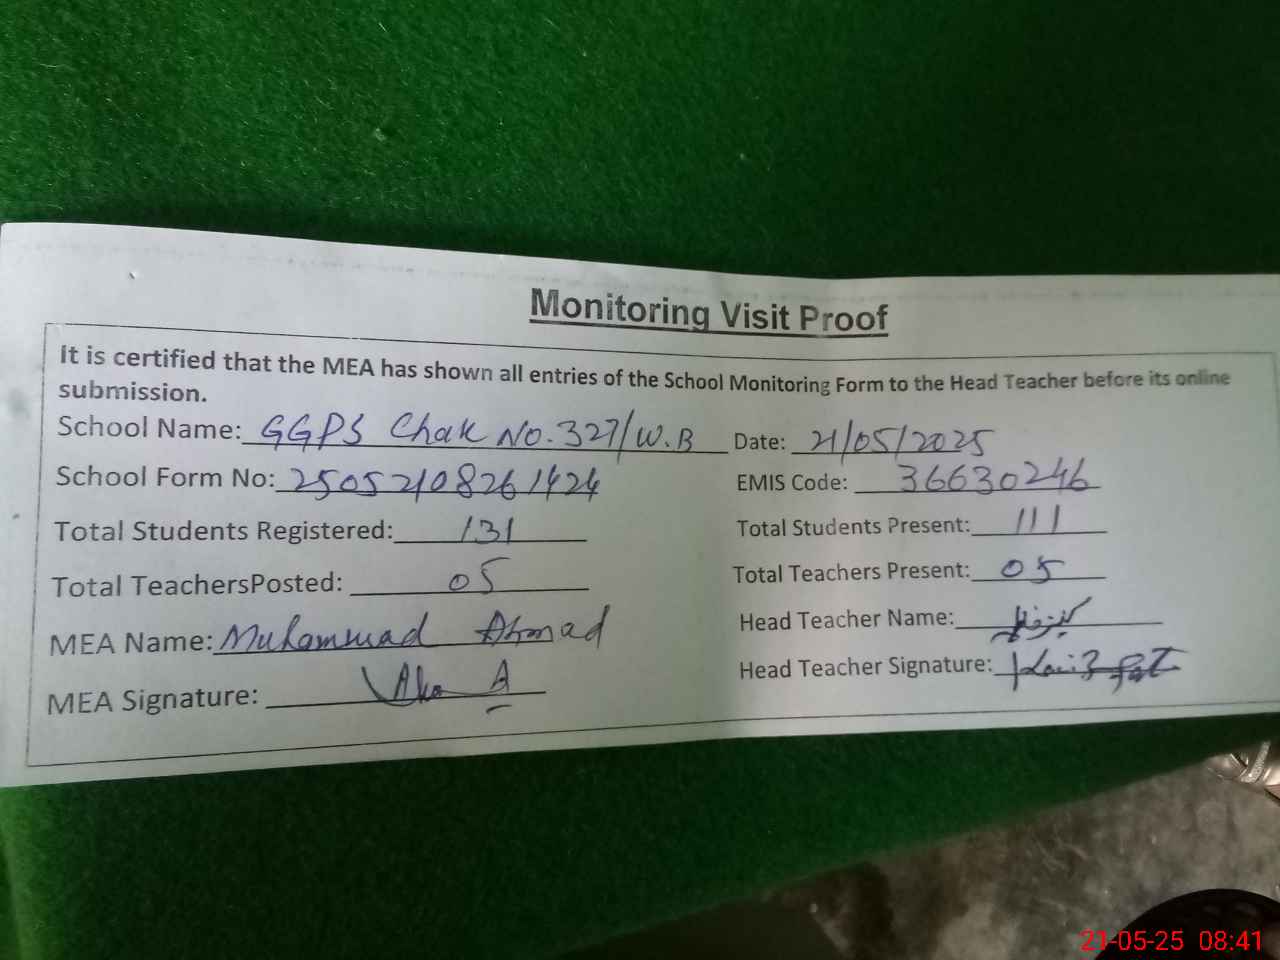 Monitoring Visit Proof
It is certified that the MEA has shown all entries of the School Monitoring Form to the Head Teacher before its online
submission.
School Name: GGPS Chak No. 327/W.B Date: 21/05/2025
School Form No: 25052108261424 EMIS Code: 36630246
Total Students Registered: 131 Total Students Present: 111
Total TeachersPosted: 05 Total Teachers Present: 05
MEA Name: Muhammad Ahmad Head Teacher Name:
MEA Signature: Head Teacher Signature:
21-05-25 08:41